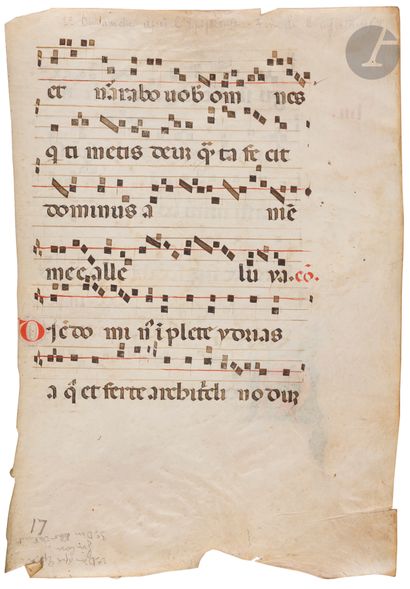 et narabo vob omnes
q timetis deuz qta fecit
dominus a nie
mee alle luya. co.
Dicedo mi n iplete ydrias
a q et ferte architicli no duz
17